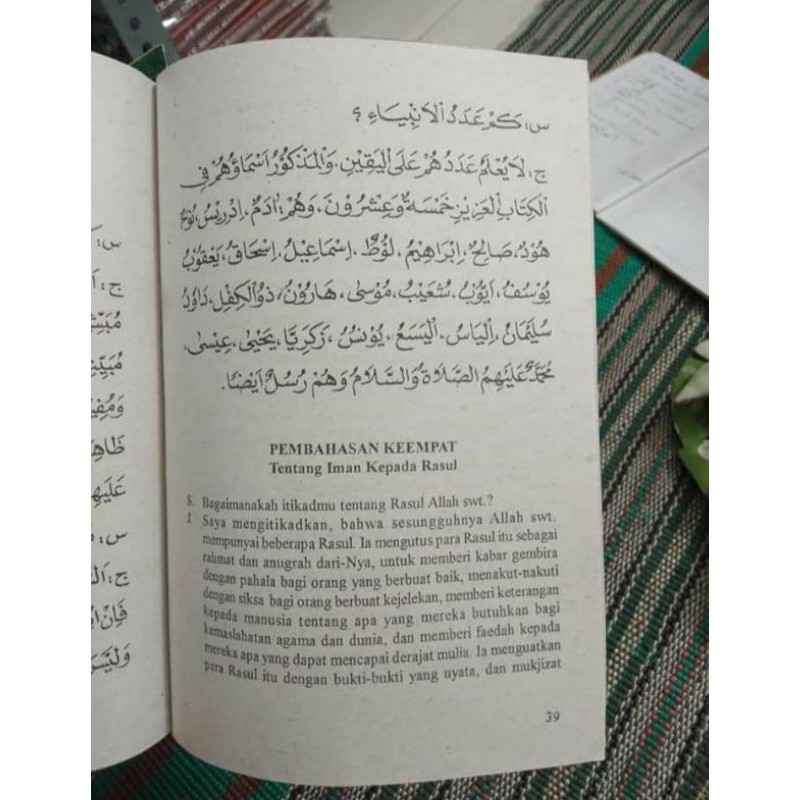 س: كَمْ عَدَدُ الْاَنْبِيَاءِ ؟
ج: لَا يُعْلَمُ عَدَدُهُمْ عَلَى الْيَقِيْنِ، وَالْمَذْكُوْرُ اَسْمَاؤُهُمْ فِى
الْكِتَابِ الْعَزِيْزِ خَمْسَةٌ وَعِشْرُوْنَ، وَهُمْ: اٰدَمُ، اِدْرِيْسُ، نُوْحٌ
هُوْدٌ، صَالِحٌ، اِبْرَاهِيْمُ، لُوْطٌ، اِسْمَاعِيْلُ، اِسْحَاقُ، يَعْقُوْبُ
يُوْسُفُ، اَيُّوْبُ، شُعَيْبٌ، مُوْسٰى، هَارُوْنُ، ذُوالْكِفْلِ، دَاوُدُ
سُلَيْمَانُ، اِلْيَاسُ، اَلْيَسَعُ، يُوْنُسُ، زَكَرِيَّا، يَحْيٰى، عِيْسٰى،
مُحَمَّدٌ عَلَيْهِمُ الصَّلَاةُ وَالسَّلَامُ وَهُمْ رُسُلٌ اَيْضًا.
PEMBAHASAN KEEMPAT
Tentang Iman Kepada Rasul
S. Bagaimanakah itikadmu tentang Rasul Allah swt.?
J. Saya mengitikadkan, bahwa sesungguhnya Allah swt.
mempunyai beberapa Rasul. Ia mengutus para Rasul itu sebagai
rahmat dan anugrah dari-Nya, untuk memberi kabar gembira
dengan pahala bagi orang yang berbuat baik, menakut-nakuti
dengan siksa bagi orang berbuat kejelekan, memberi keterangan
kepada manusia tentang apa yang mereka butuhkan bagi
kemaslahatan agama dan dunia, dan memberi faedah kepada
mereka apa yang dapat mencapai derajat mulia. Ia menguatkan
para Rasul itu dengan bukti-bukti yang nyata, dan mukjizat
39